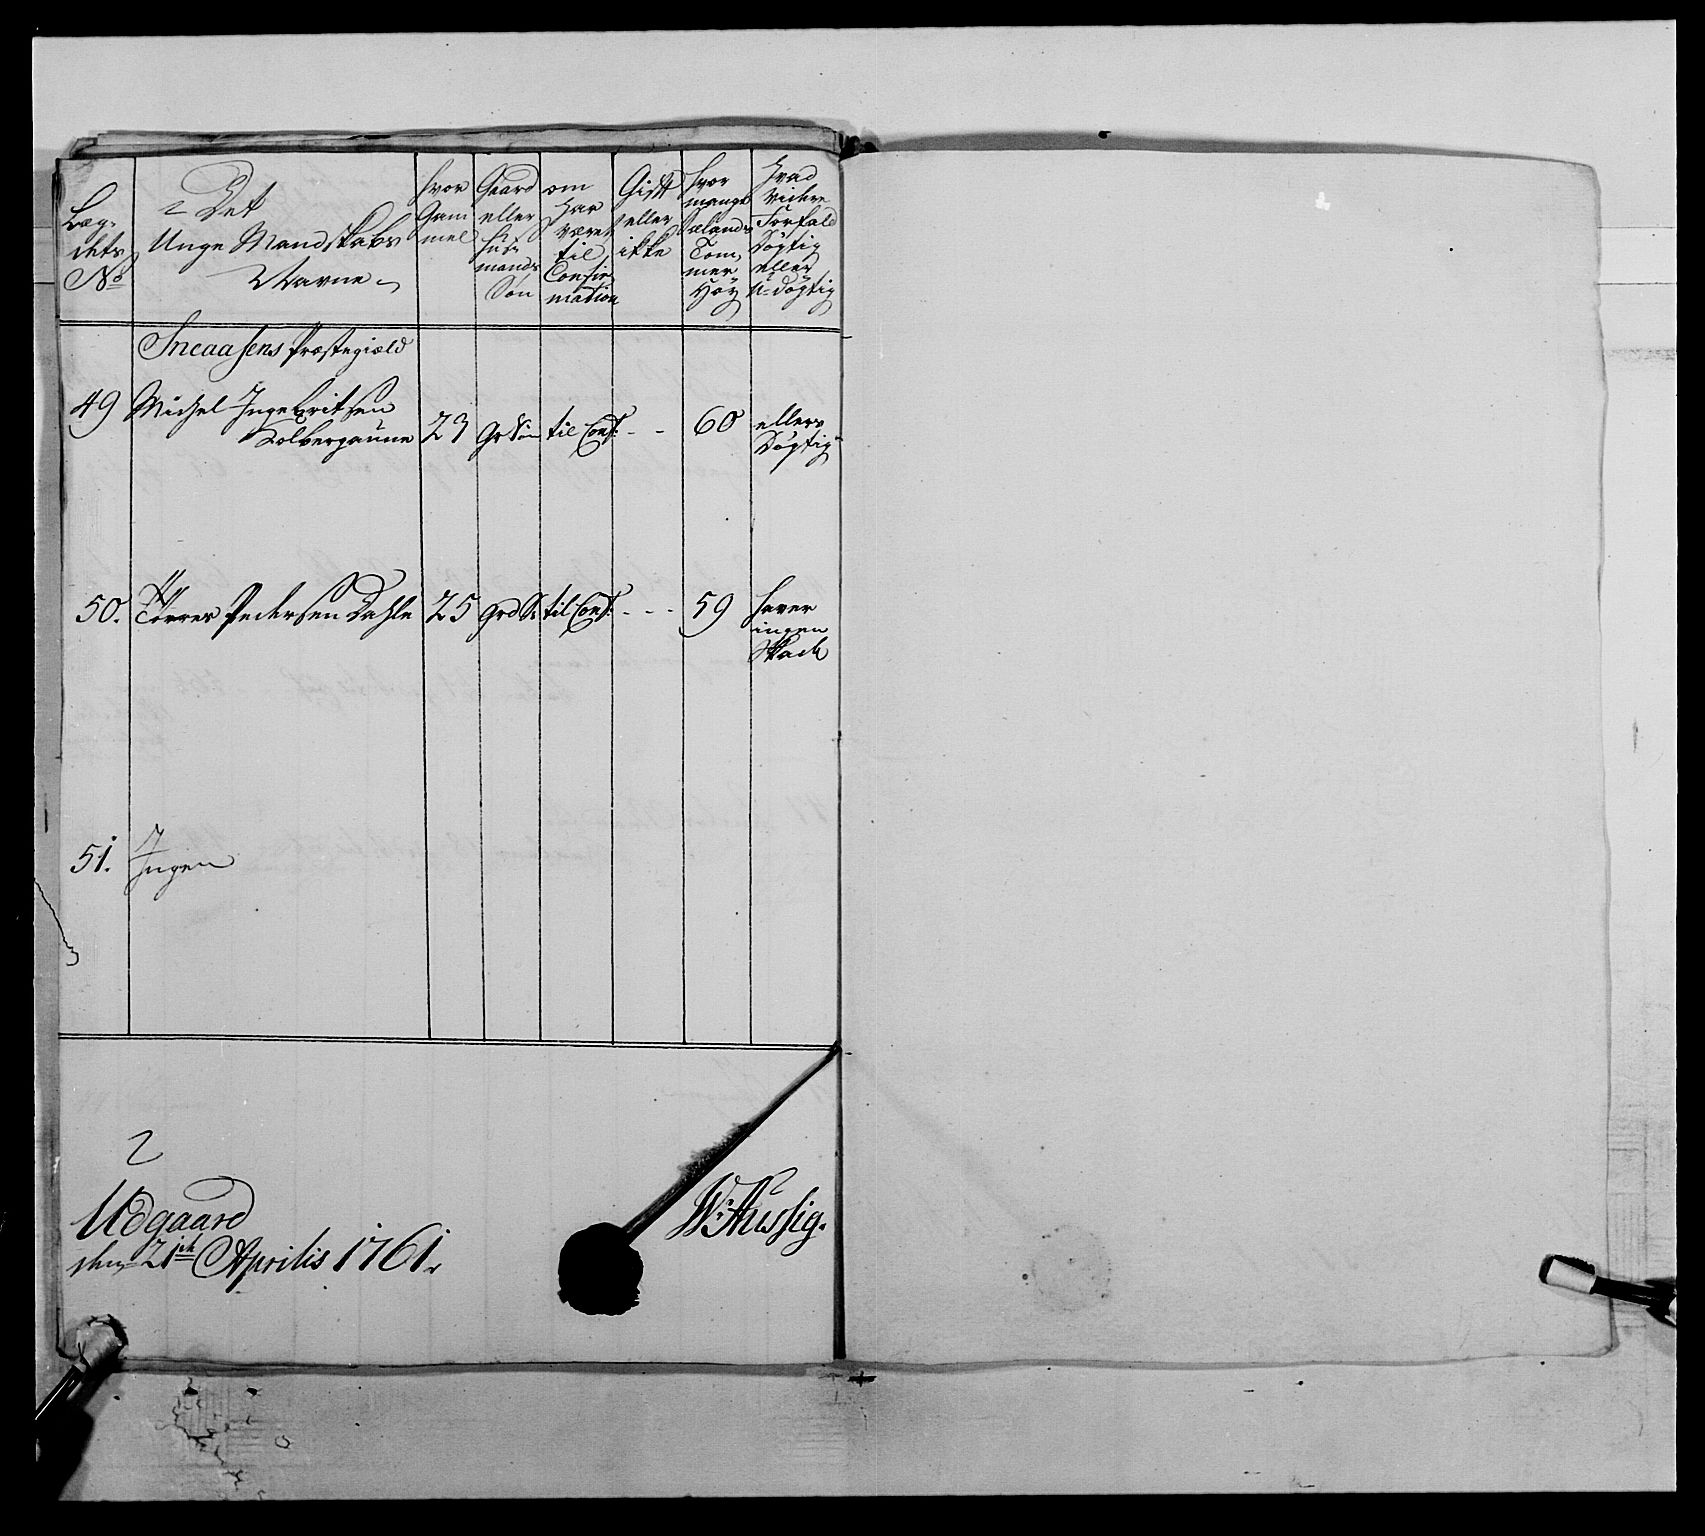 Læg-
dets
No
Det
Unge Mandskabs
Navne
hvor
Gam
mel
Gaard
eller
Huus
mands
Søn
om
Har
været
til
Confir
mation
Gift
eller
ikke
hvor
mange
ælands
Tom,
mer
Høy
Hvad
videre
Forfald
Døgtig
eller
U-døgtig
Sneaasens Præstegiæld
49 Michel IngeBritsen
Kolbergaune 23 Gr Søn til Conf: - - 60 ellers
Døgtig
50. Torres Pedersen Dahle 25 Grd S: til Conf: - - - 59 haver
ingen
Skade
51. Ingen
Udgaard
den 21de Aprilis 1761.
W: Hussig.